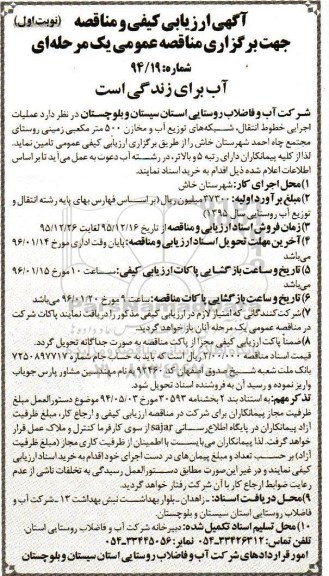 آگهی ارزیابی کیفی و مناقصه (نوبت اول)
جهت برگزاری مناقصه عمومی یک مرحله‌ای
شماره: ۹۴/۱۹
آب برای زندگی است
شرکت آب و فاضلاب روستایی استان سیستان و بلوچستان در نظر دارد عملیات
اجرایی خطوط انتقال، شبکه‌های توزیع آب و مخازن ۵۰۰ متر مکعبی زمینی روستای
مجتمع چاه احمد شهرستان خاش را از طریق برگزاری ارزیابی کیفی عمومی تامین نماید.
لذا از کلیه پیمانکاران دارای رتبه ۵ و بالاتر، در رشته آب دعوت به عمل می‌آید تا بر اساس
اطلاعات اعلام شده ذیل اقدام به خرید اسناد نمایند.
۱) محل اجرای کار: شهرستان خاش
۲) مبلغ برآورد اولیه: ۳۷۳۰۰ میلیون ریال (بر اساس فهارس بهای پایه رشته انتقال و
توزیع آب روستایی سال ۱۳۹۵)
۳) زمان فروش اسناد ارزیابی و مناقصه: از تاریخ ۹۵/۱۲/۱۶ لغایت ۹۵/۱۲/۲۶
۴) آخرین مهلت تحویل اسناد ارزیابی و مناقصه: پایان وقت اداری مورخ ۹۶/۰۱/۱۴
می‌باشد
۵) تاریخ و ساعت بازگشایی پاکات ارزیابی کیفی: ساعت ۱۰ مورخ ۹۶/۰۱/۱۵
می‌باشد
۶) تاریخ و ساعت بازگشایی پاکات مناقصه: ساعت ۹ مورخ ۹۶/۰۱/۲۰ می‌باشد
۷) شرکت‌کنندگانی که امتیاز لازم در ارزیابی کیفی مذکور را دریافت نمایند پاکات شرکت
در مناقصه عمومی یک مرحله آنان باز خواهد گردید.
۸) ضمناً پاکت ارزیابی کیفی مجزا از پاکت مناقصه به صورت جداگانه تحویل گردد.
قیمت اسناد مناقصه ۲/۰۰۰/۰۰۰ ریال است که باید به حساب جام شماره ۷۲۵۰۸۹۷۷۱۷
بانک ملت شعبه شیخ صدوق اصفهان کد ۸۹۳۴۶۰ به نام مهندسین مشاور پارس جویاب
واریز نموده و رسید آن به فروشنده اسناد تحویل شود.
تذکر مهم: به استناد بند ۲ بخشنامه ۳۰۵۹۳ مورخ ۹۴/۰۵/۰۳ موضوع دستورالعمل مبلغ
ظرفیت مجاز پیمانکاران برای شرکت در مناقصه ارزیابی کیفی و ارجاع کار، مبلغ ظرفیت
آزاد پیمانکاران در پایگاه اطلاع‌رسانی sajar از سوی کارفرما کنترل و ملاک عمل قرار
خواهد گرفت. لذا پیمانکاران می‌بایست با اطمینان از ظرفیت کاری مجاز (مبلغ ظرفیت
آزاد) بر حسب تعداد و مبلغ پیمان‌های در دست اجرای خود اقدام به خرید اسناد ارزیابی
کیفی نمایند و در غیر این صورت مطابق دستورالعمل رسیدگی به تخلفات ناشی از عدم
رعایت ضوابط ارجاع کار با آن شرکت رفتار خواهد گردید.
۹) محل دریافت اسناد: زاهدان - بلوار بهداشت نبش بهداشت ۱۳ - شرکت آب و
فاضلاب روستایی استان سیستان و بلوچستان.
۱۰) محل تسلیم اسناد تکمیل شده: دبیرخانه شرکت آب و فاضلاب روستایی استان.
تماس: ۰۵۴-۳۳۴۲۶۳۱۲ نمابر: ۰۵۴-۳۳۴۴۵۰۵۶
امور قراردادهای شرکت آب و فاضلاب روستایی استان سیستان و بلوچستان